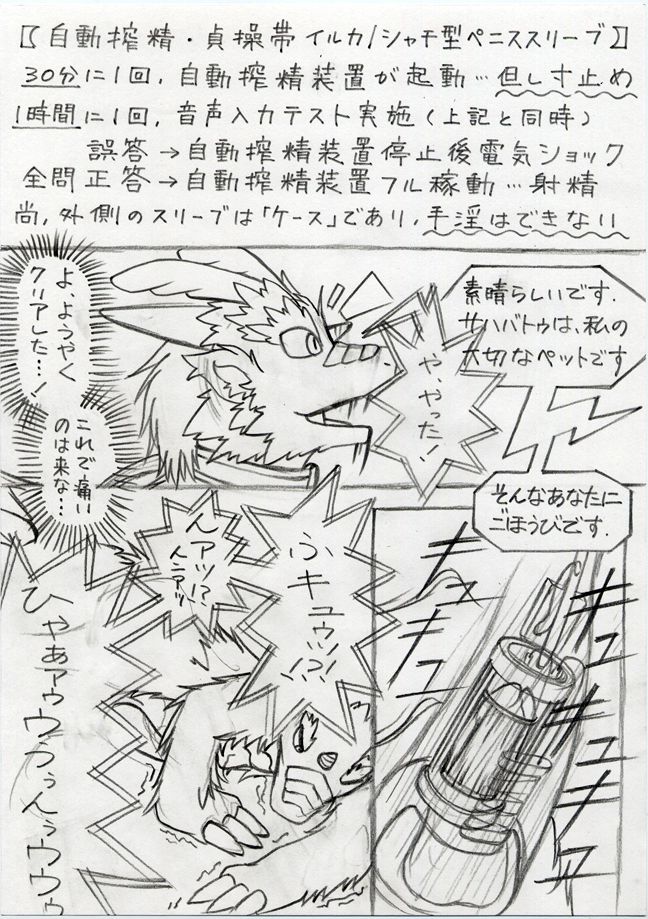 【自動搾精・貞操帯 イルカ/シャチ型ペニススリーブ】
30分に1回、自動搾精装置が起動…但し寸止め
1時間に1回、音声入力テスト実施(上記と同時)
誤答→自動搾精装置停止後電気ショック
全問正答→自動搾精装置フル稼動…射精
尚、外側のスリーブは「ケース」であり、手淫はできない
素晴らしいです.
サハバトゥは、私の
大切なペットです
や、やった!
よ、ようやく
クリアした…!
これで痛い
のは来な…
そんなあなたに
ごほうびです.
キュ
キュ
キュ
キュ
ふキュウッ!?!
んアッ!?
んんアッ
ひゃあァゥウぅぅんぅウウゥ